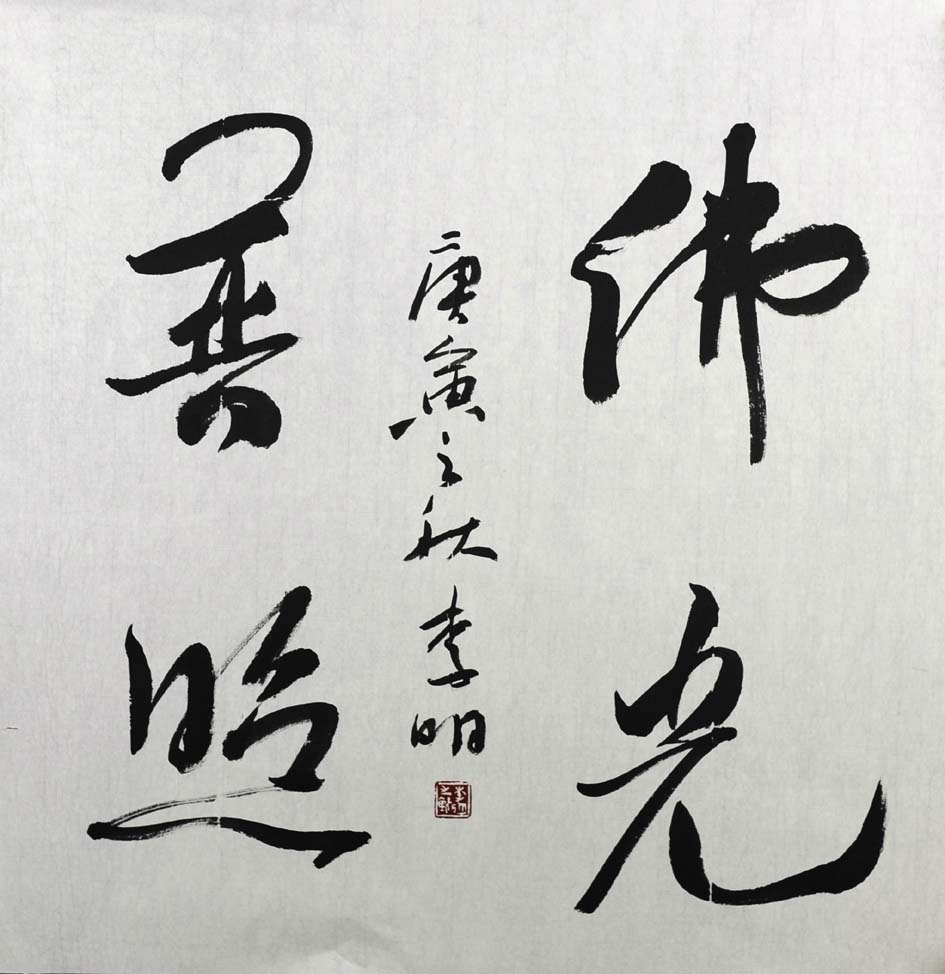 佛光
普照
庚寅之秋李明